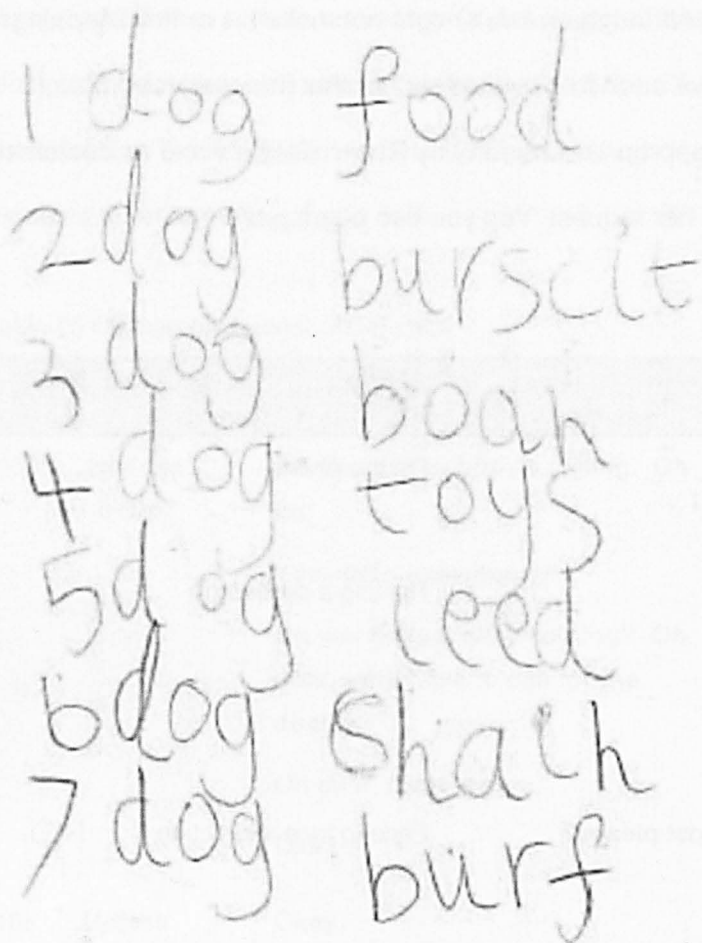 1 dog food
2 dog burscit
3 dog bogh
4 dog toys
5 dog leed
6 dog shaih
7 dog burf